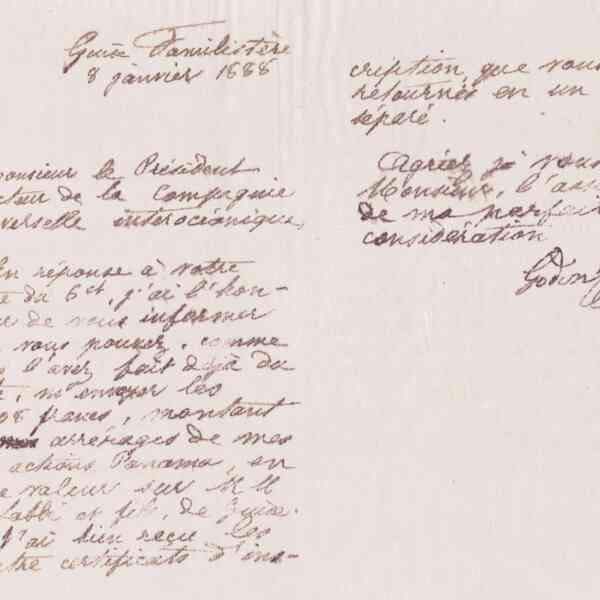 Guise Familistère
8 janvier 1888
onsieur le Président
cteur de la Compagnie
verselle interocéanique,
En réponse à votre
e du 6ct, j'ai l'hon-
r de vous informer
vous pouvez, comme
l'avez fait déjà du
, m'envoyer les
08 francs, montant
arrérages de mes
actions Panama, en
e valeur sur M M
labbé et fils, de Guise.
J'ai bien reçu les
tre certificats d'ins-
cription que vous
retournés en un
séparé.
Agréez je vous
Monsieur, l'ass
de ma parfait
considération
Godin